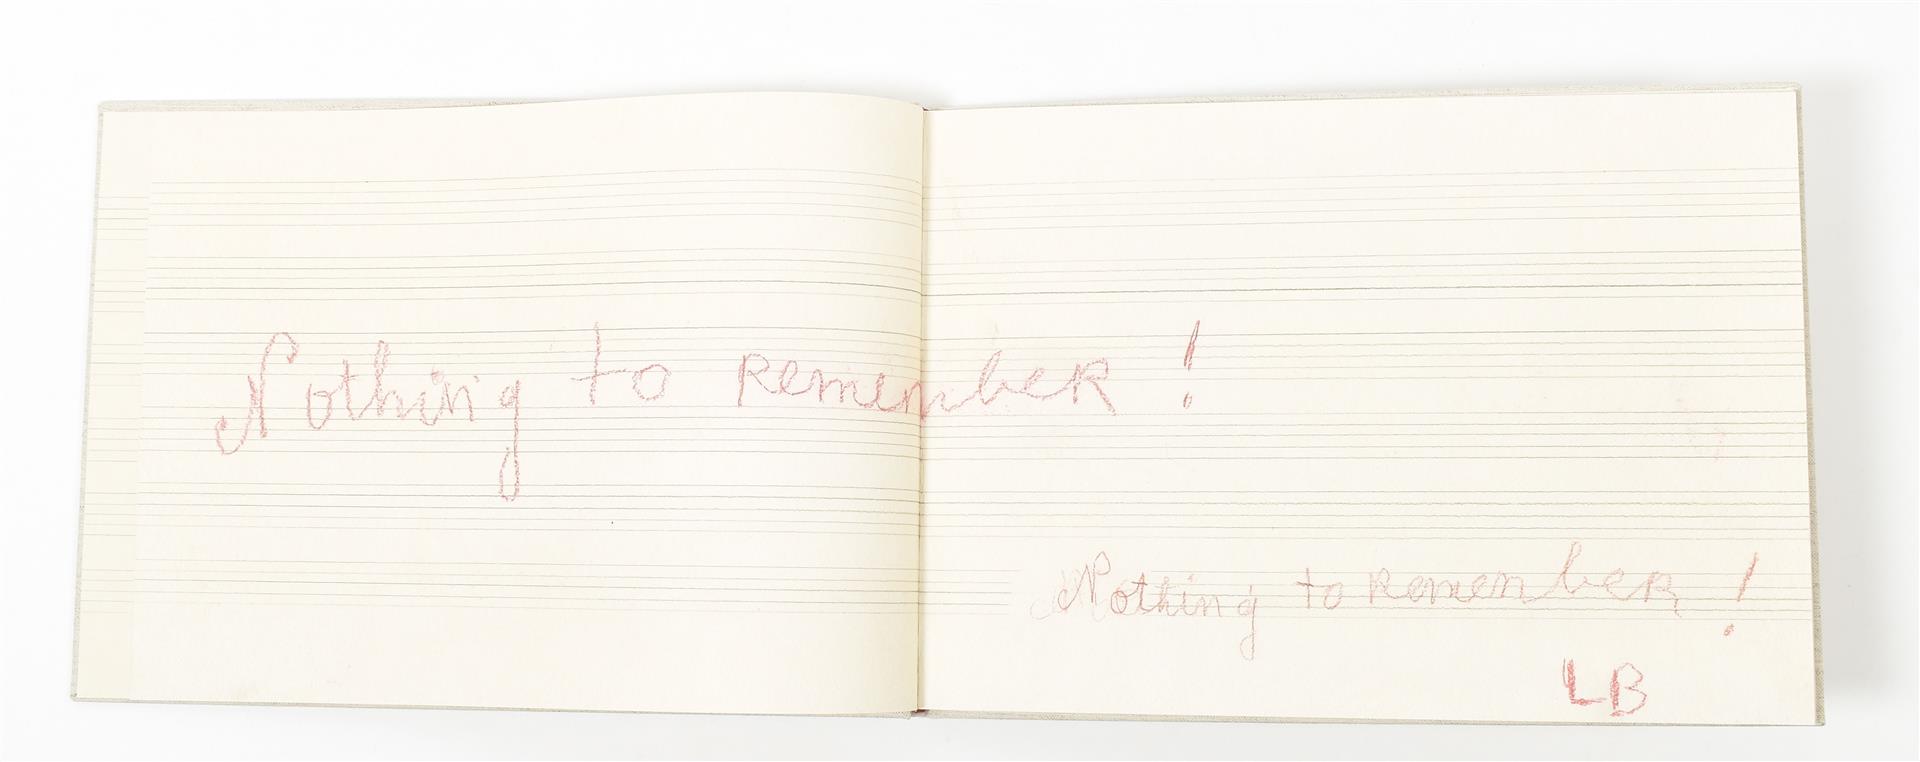 Nothing to remember !
Nothing to remember !
LB